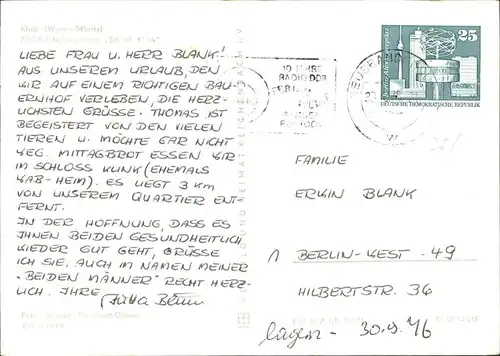 Klink (Waren-Müritz)
LIEBE FRAU U. HERR BLANK!
AUS UNSEREM URLAUB, DEN
WIR AUF EINEM RICHTIGEN BAU-
ERNHOF VERLEBEN, DIE HERZ-
LICHSTEN GRÜSSE. THOMAS IST
BEGEISTERT VON DEN VIELEN
TIEREN U. MÖCHTE GAR NICHT
WEG. MITTAGBROT ESSEN WIR
IN SCHLOSS KLINK (EHEMALS
KAB-HEIM). ES LIEGT 3 KM
VON UNSEREM QUARTIER ENT-
FERNT.
IN DER HOFFNUNG, DASS ES
IHNEN BEIDEN GESUNDHEITLICH
WIEDER GUT GEHT, GRÜSSE
ICH SIE, AUCH IM NAMEN MEINER
"BEIDEN MÄNNER" RECHT HERZ-
LICH. IHRE Jutta
BILD UND HEIMAT REICHENBACH I.V.
30 JAHRE
RADIO DDR
25
Berlin-Alexanderplatz
DEUTSCHE DEMOKRATISCHE REPUBLIK
FAMILIE
ERWIN BLANK
1 BERLIN-WEST-49
HILBERTSTR. 36
30.9.76